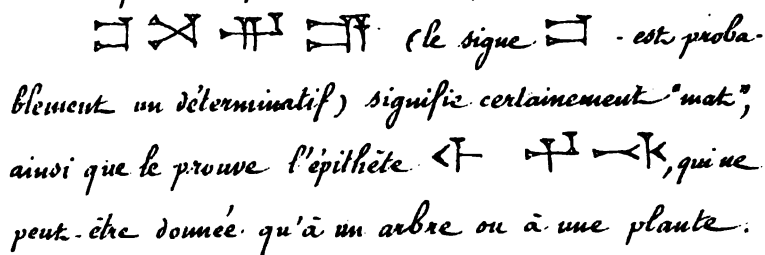 𒄑 (le signe 𒄑 - est proba-
blement un déterminatif) signifie certainement "mat",
ainsi que le prouve l'épithète , qui ne
peut-être donnée qu'à un arbre ou à une plante.